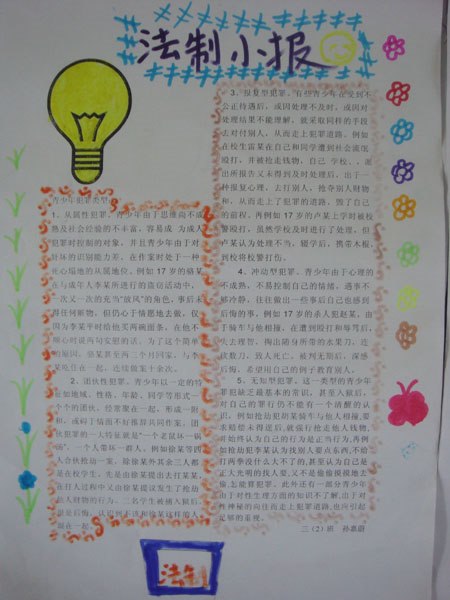 法制小报
青少年犯罪类型
1、从属性犯罪。青少年由于思维尚不成
熟及社会经验的不丰富,容易成 为成人
犯罪时控制的对象,并且青少年由于对
的识别能力差,在作案时处于一种
死心塌地的从属地位。例如 17 岁的骆某
在与成年人李某所进行的盗窃活动中,
一次又一次的充当"放风"的角色,事后未
得任何赃物,但仍心于情愿地去做,仅
因为李某平时给他买两碗面条,在他不
顺心时说两句安慰的话。为了这个简单
的原因,骆某甚至两三个月回家,与李
某吃住在一起,连续做案十余次。
2、团伙性犯罪。青少年以一定的特
征如地域、性格、年龄、同学等形式一
个个的团伙,经常聚在一起,形成一附
和,或碍于情面不好推辞共同作案。团
伙犯罪的一大特征就是"一个老鼠坏一锅
汤",一个人带坏一群人。例如徐某等四
人合伙抢劫一案,除徐某外其余三人都
是在校学生,先是由徐某提出去打某某,
在打人过程中又由徐某提议发生了抢劫
他人财物的行为。二名学生被捕入狱后
很是后悔,认识到不该和徐某这样的人
混在一起。
3、报复型犯罪。有些青少年在受到不
公正待遇后,或因处理不及时,或因对
处理结果不能理解,就采取同样的手段
去对付别人,从而走上犯罪道路。例如
在校生雷某在和同学遭到社会流氓
殴打,并被抢走钱物,自己 学校、、派
出所报告又未得到及时处理后,出于一
种报复心理,去打别人,抢夺别人财物
和,从而走上了犯罪的道路,毁了自己
的前程。再例如 17 岁的卢某上学时被校
警殴打,虽然学校及时进行了处理,但
卢某认为处理不当,辍学后,携带木棍,
到校将校警打伤。
4、冲动型犯罪。青少年由于心理的
不成熟,不易控制自己的情绪,遇事不
够冷静,往往做出一些事后自己也感到
后悔的事,例如 17 岁的杀人犯赵某,由
于骑车与他相撞,在遭到殴打和辱骂后,
失去理智,掏出随身所带的水果刀,连
次数刀,致人死亡。被判无期后,深感
后悔,希望用自己的例子教育别人。
5、无知型犯罪。这一类型的青少年
罪犯缺乏最基本的常识,甚至入狱后,
对自己的罪行仍不能有一个清醒的认
识。例如抢劫犯胡某骑车与他人相撞,要
求赔偿未得逞后,就强行抢走他人钱物,
并始终认为自己的行为是正当行为。再例
如抢劫犯李某认为找别人要点东西,不给
打两拳没什么大不了的,甚至认为自己是
正大光明的找人要,又不是偷偷摸摸地去
偷,怎能算犯罪。此外还有一部分青少年
由于对性生理方面的知识不了解,出于对
性神秘的向往而走上犯罪道路,也应引起
足够的重视。
三(2)班 孙嘉蔚
法制